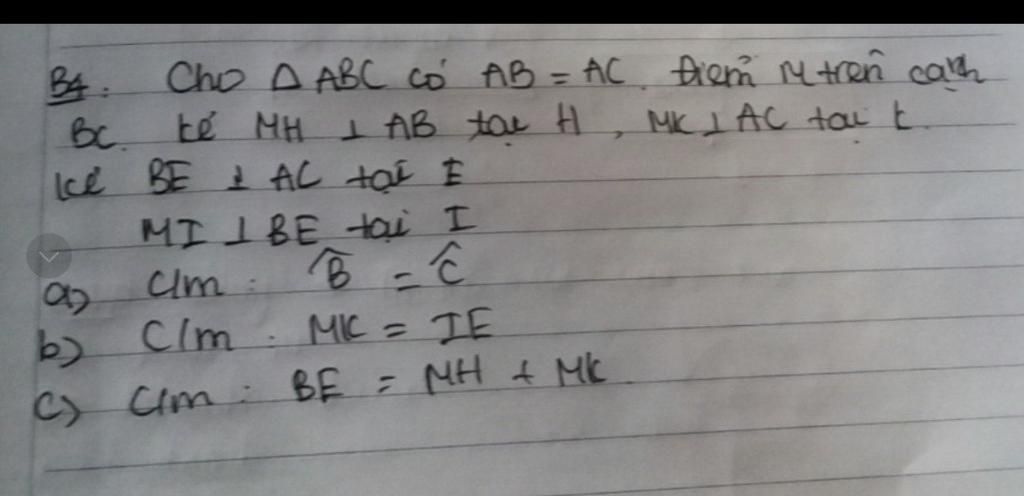 B4: Cho Δ ABC có AB = AC. Điểm M trên cạnh
BC. kẻ MH ⊥ AB tại H, MK ⊥ AC tại K.
kẻ BE ⊥ AC tại E
MI ⊥ BE tại I
a) C/m: B̂ = Ĉ
b) C/m: MK = IE
c) C/m: BE = MH + MK.